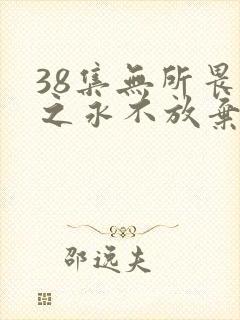 38集無所畏
之永不放棄
邵远夫